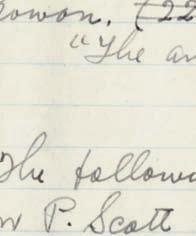 owon. (22
"The an
The followi
w P. Scott